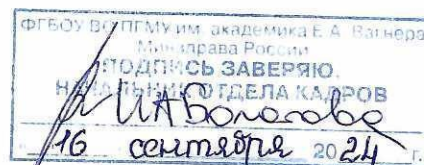 ФГБОУ ВО ПГМУ им. академика Е.А. Вагнера
Минздрава России
ПОДПИСЬ ЗАВЕРЯЮ.
НАЧАЛЬНИК ОТДЕЛА КАДРОВ
И.А. Болотова
"16 сентября 2024 г.